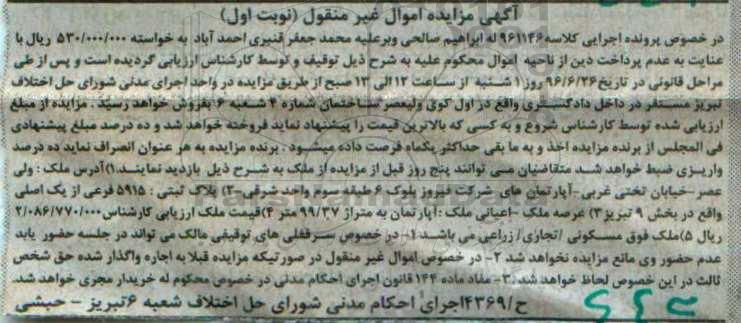 آگهی مزایده اموال غیر منقول (نوبت اول)
در خصوص پرونده اجرایی کلاسه ۹۶۱۱۴۶ له ابراهیم صالحی وبرعلیه محمد جعفر قنبری احمد آباد به خواسته ۵۳۰/۰۰۰/۰۰۰ ریال با
عنایت به عدم پرداخت دین از ناحیه اموال محکوم علیه به شرح ذیل توقیف و توسط کارشناس ارزیابی گردیده است و پس از طی
مراحل قانونی در تاریخ ۹۶/۶/۲۶ روز ۱ شنبه از ساعت ۱۲ الی ۱۳ صبح از طریق مزایده در واحد اجرای مدنی شورای حل اختلاف
تبریز مستقر در داخل دادگستری واقع در اول کوی ولیعصر ساختمان شماره ۴ شعبه ۶ بفروش خواهد رسید . مزایده از مبلغ
ارزیابی شده توسط کارشناس شروع و به کسی که بالاترین قیمت را پیشنهاد نماید فروخته خواهد شد و ده درصد مبلغ پیشنهادی
فی المجلس از برنده مزایده اخذ و به ما بقی حداکثر یکماه فرصت داده میشود . برنده مزایده به هر عنوان انصراف نماید ده درصد
واریزی ضبط خواهد شد متقاضیان می توانند پنج روز قبل از مزایده از ملک به شرح ذیل بازدید نمایند.۱)آدرس ملک : ولی
عصر-خیابان تختی غربی-آپارتمان های شرکت فیروز بلوک ۶ طبقه سوم واحد شرقی-۲) پلاک ثبتی : ۵۹۱۵ فرعی از یک اصلی
واقع در بخش ۹ تبریز ۳) عرصه ملک -اعیانی ملک : آپارتمان به متراژ ۹۹/۳۷ متر ۴)قیمت ملک ارزیابی کارشناس ۲/۰۸۶/۷۷۰/۰۰۰
ریال ۵)ملک فوق مسکونی /تجاری/ زراعی می باشد ۱- در خصوص سرقفلی های توقیفی مالک می تواند در جلسه حضور یابد
عدم حضور وی مانع مزایده نخواهد شد ۲- در خصوص اموال غیر منقول در صورتیکه مزایده قبلا به اجاره واگذار شده حق شخص
ثالث در این خصوص لحاظ خواهد شد .۳- مفاد ماده ۱۴۴ قانون اجرای احکام مدنی در خصوص محکوم له خریدار مجری خواهد شد.
ح/۴۳۶۹ اجرای احکام مدنی شورای حل اختلاف شعبه ۶ تبریز - حبشی